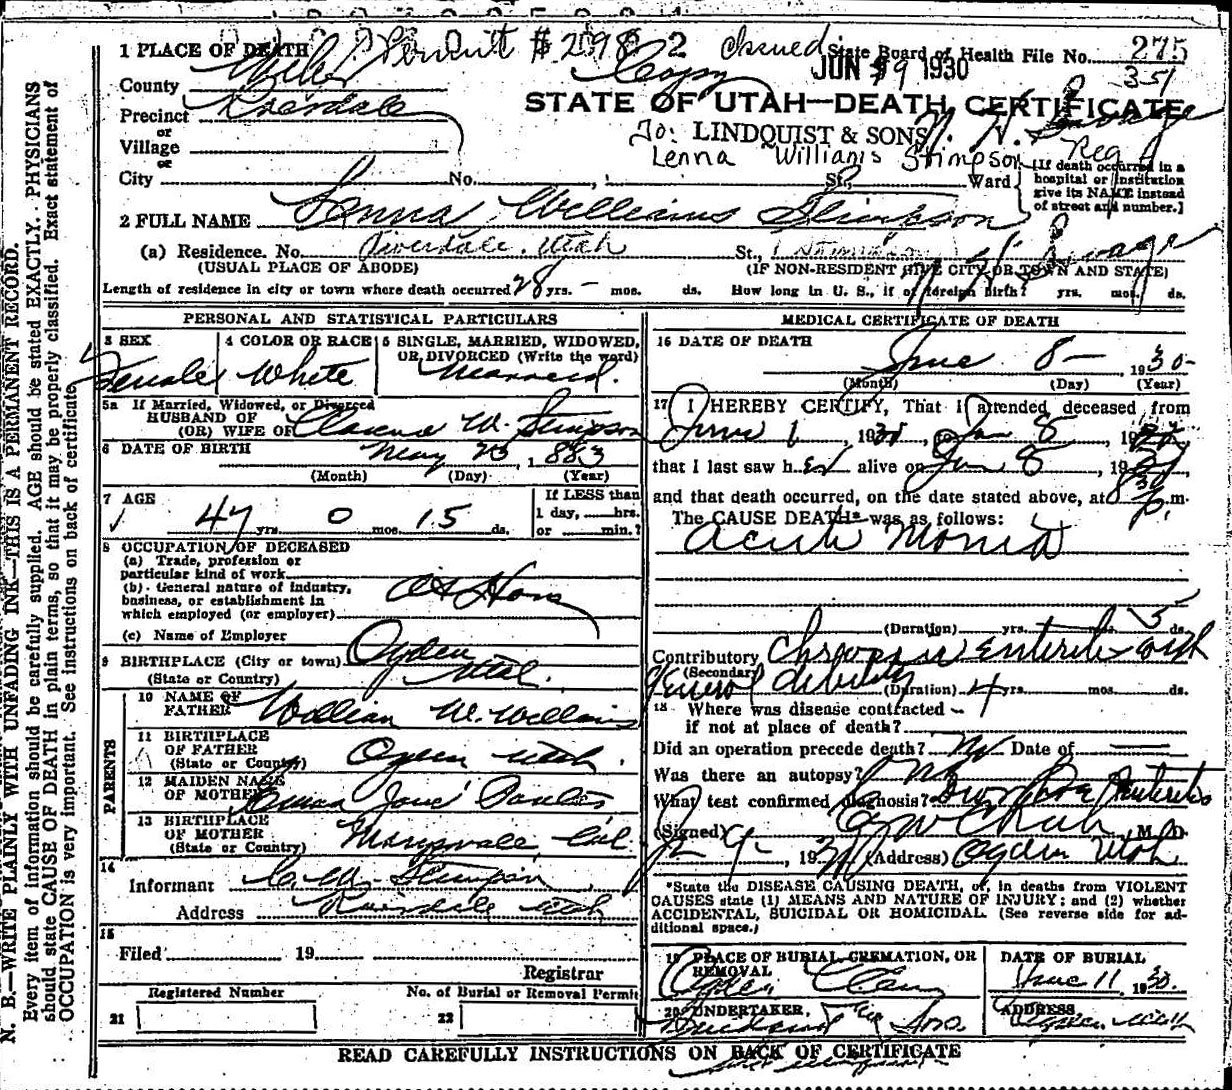 Permit # 298 2 Issued State Board of Health File No. 275
1 PLACE OF DEATH
JUN 9 1930
351
County Weber
Copy
Precinct Riverdale
STATE OF UTAH—DEATH CERTIFICATE
or
Village
To: LINDQUIST & SONS
Lenna Williams Stimpson
Reg
or
City No. St., Ward
[If death occurred in a hospital or institution give its NAME instead of street and number.]
2 FULL NAME Lenna Williams Stimpson
(a) Residence. No. Riverdale, Utah St., (Stimpson)
(USUAL PLACE OF ABODE) (IF NON-RESIDENT GIVE CITY OR TOWN AND STATE)
Length of residence in city or town where death occurred 28 yrs. - mos. ds. How long in U. S., if of foreign birth? yrs. mos. ds.
PERSONAL AND STATISTICAL PARTICULARS
3 SEX Female
4 COLOR OR RACE White
5 SINGLE, MARRIED, WIDOWED, OR DIVORCED (Write the word) Married.
5a If Married, Widowed, or Divorced
HUSBAND OF
(OR) WIFE OF Clarence W. Stimpson
6 DATE OF BIRTH May 23, 1883
(Month) (Day) (Year)
7 AGE 47 yrs. 0 mos. 15 ds.
If LESS than
1 day, hrs.
or min.?
8 OCCUPATION OF DECEASED
(a) Trade, profession or
particular kind of work
(b) General nature of industry,
business, or establishment in
which employed (or employer)
At Home
(c) Name of Employer
9 BIRTHPLACE (City or town) Ogden
(State or Country) Utah.
PARENTS
10 NAME OF
FATHER William W. Williams
11 BIRTHPLACE
OF FATHER
(State or Country) Ogden Utah.
12 MAIDEN NAME
OF MOTHER Jane
13 BIRTHPLACE
OF MOTHER
(State or Country) Cal
14
Informant C. W. Stimpson
Address Riverdale Utah
15
Filed 19
Registrar
Registered Number
No. of Burial or Removal Permit
21
22
MEDICAL CERTIFICATE OF DEATH
16 DATE OF DEATH June 8 - 1930
(Month) (Day) (Year)
17 I HEREBY CERTIFY, That I attended deceased from
June 1, 1930, to Jun 8, 19
that I last saw her alive on Jun 8, 19
and that death occurred, on the date stated above, at 8 30 p. m.
The CAUSE DEATH* was as follows:
Acute
(Duration) yrs. mos. 5 ds.
Contributory enteritis with
(Secondary)
General debility (Duration) 4 yrs. mos. ds.
18 Where was disease contracted -
if not at place of death?
Did an operation precede death? No Date of
Was there an autopsy? No
What test confirmed diagnosis?
(Signed) M. D.
9-, 1930 (Address) Ogden Utah
*State the DISEASE CAUSING DEATH, or, in deaths from VIOLENT
CAUSES state (1) MEANS AND NATURE OF INJURY; and (2) whether
ACCIDENTAL, SUICIDAL OR HOMICIDAL. (See reverse side for ad-
ditional space.)
19 PLACE OF BURIAL, CREMATION, OR
REMOVAL
Ogden
DATE OF BURIAL
June 11 1930.
20 UNDERTAKER, Lindquist & Sons.
ADDRESS
Ogden Utah
READ CAREFULLY INSTRUCTIONS ON BACK OF CERTIFICATE
N. B.—WRITE PLAINLY WITH UNFADING INK—THIS IS A PERMANENT RECORD.
Every item of information should be carefully supplied. AGE should be stated EXACTLY. PHYSICIANS
should state CAUSE OF DEATH in plain terms, so that it may be properly classified. Exact statement of
OCCUPATION is very important. See instructions on back of certificate